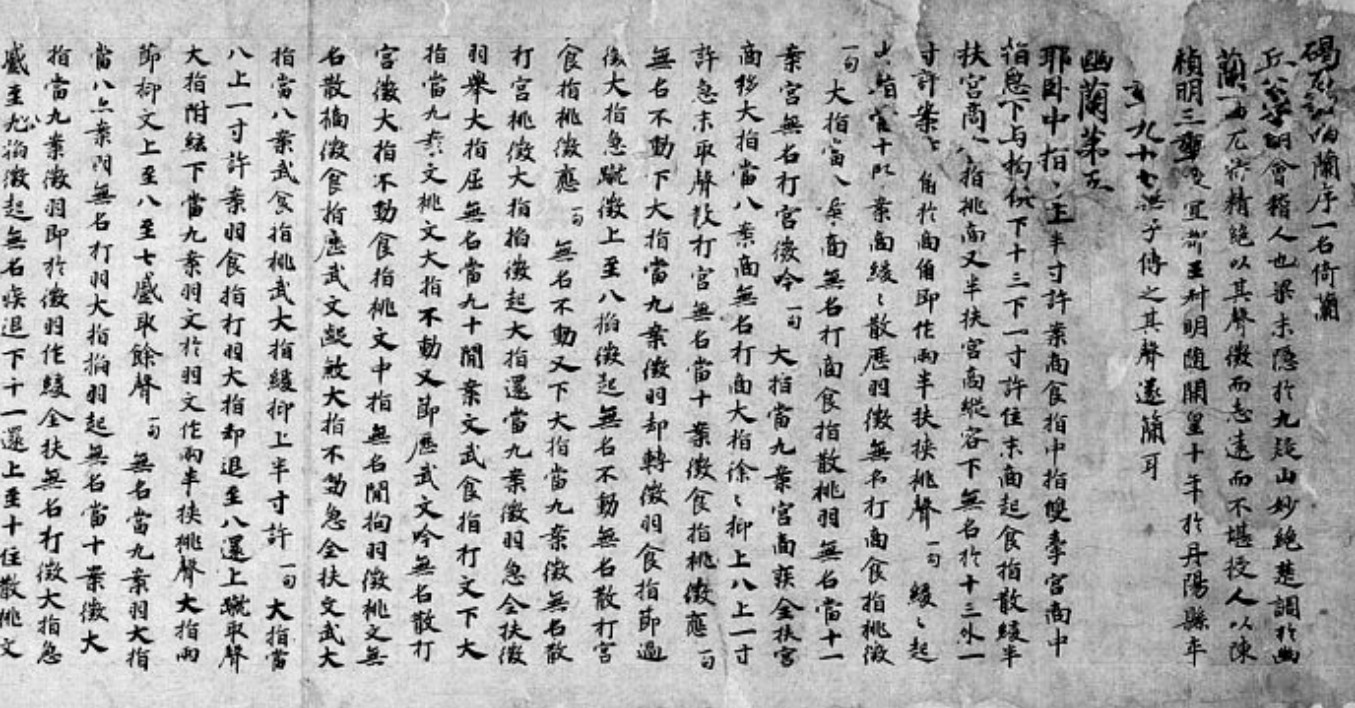 碣石調幽蘭序一名倚蘭
丘公字明會稽人也梁末隱於九疑山妙絕楚調於幽
蘭一曲尤特精絕以其聲微而志遠而不堪授人以陳
禎明三年授宜都王叔明隨開皇十年於丹陽縣卒
九十七無子傳之其聲遂簡耳
幽蘭第五
耶臥中指、上半寸許案商食指中指雙牽宮商中
指急下与拘俱下十三下一寸許住末商起食指散緩半
扶宮商食指挑商又半扶宮商縱容下無名於十三外一
寸許案商角於商角即作兩半扶挾挑聲一句緩〻起
無名當十三案商緩〻散歷羽徵無名打商食指挑徵
一句大指當八案商無名打商食指散挑羽無名當十一
案宮無名打宮徵吟一句大指當九案宮商疾全扶宮
商移大指當八案商無名打商大指徐〻抑上八上一寸
許急末取聲散打宮無名當十案徵食指挑徵應一句
無名不動下大指當九案徵羽却轉徵羽食指節過
後大指急蹴徵上至八掐徵起無名不動無名散打宮
食指挑徵應一句無名不動又下大指當九案徵無名散
打宮挑徵大指掐徵起大指還當九案徵羽急全扶徵
羽舉大指屈無名當九十間案文武食指打文下大
指當九案文挑文大指不動又節歷武文吟無名散打
宮徵大指不動食指挑文中指無名間拘羽徵挑文無
名散摘徵食指歷武文起散大指不動急全扶文武大
指當八案武食指挑武大指緩抑上半寸許一句大指當
八上一寸許案羽食指打羽大指却退至八還上蹴取聲
大指附絃下當九案羽文於羽文作兩半挾挑聲大指兩
節抑文上至八至七蹙取餘聲一句無名當九案羽大指
當八上案門無名打羽大指搯羽起無名當十案徵大
指當九案徵羽即於徵羽作緩全扶無名打徵大指急
蹙至九掐徵起無名疾退下十一還上至十住散挑文